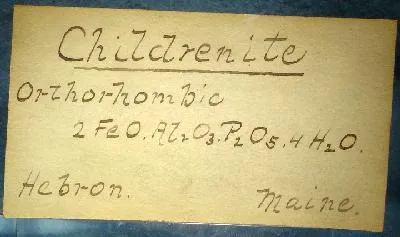 Childrenite
Orthorhombic
2 FeO. Al₂O₃. P₂O₅. 4 H₂O.
Hebron. Maine.